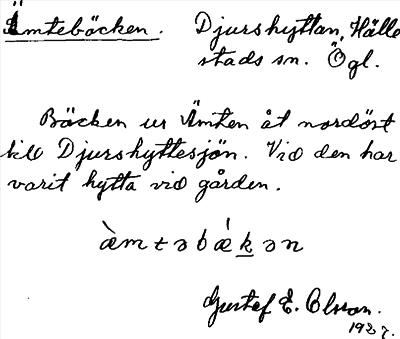 Ämtebäcken. Djurshyttan, Hälle
stads sn. Ögl.
Bäcken ur Ämten åt nordöst
till Djurshyttesjön. Vid den har
varit hytta vid gården.
æ̀mtəbǽkən
Gustaf E. Olsson.